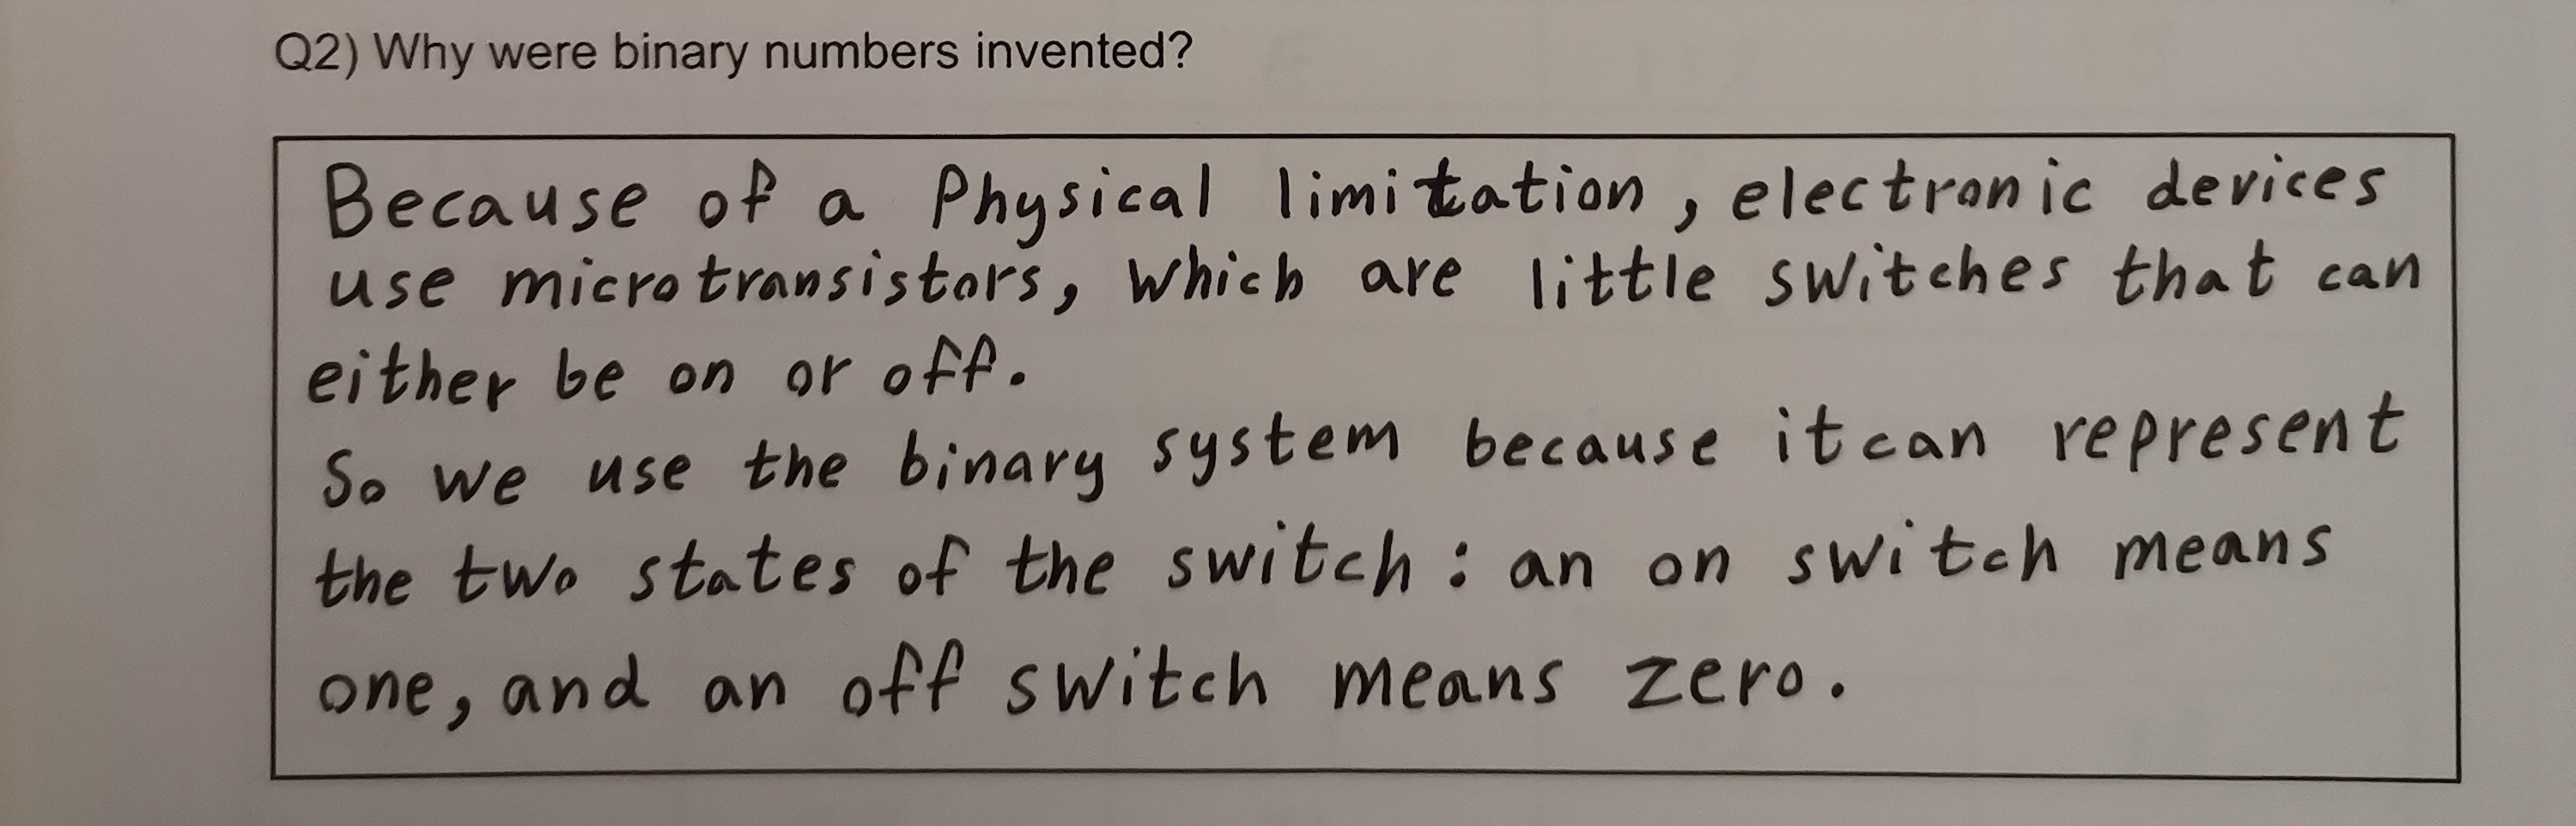 Q2) Why were binary numbers invented?
Because of a Physical limitation, electronic devices
use microtransistors, which are little switches that can
either be on or off.
So we use the binary system because it can represent
the two states of the switch: an on switch means
one, and an off switch means zero.